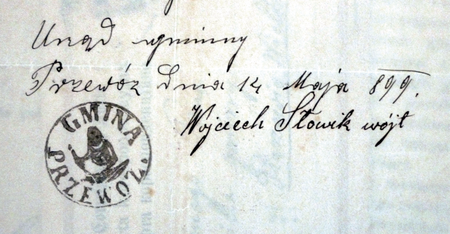 Urząd gminny
Przewóz dnia 14 Maja 899.
Wojciech Słowik wójt
GMINA
PRZEWOZ.